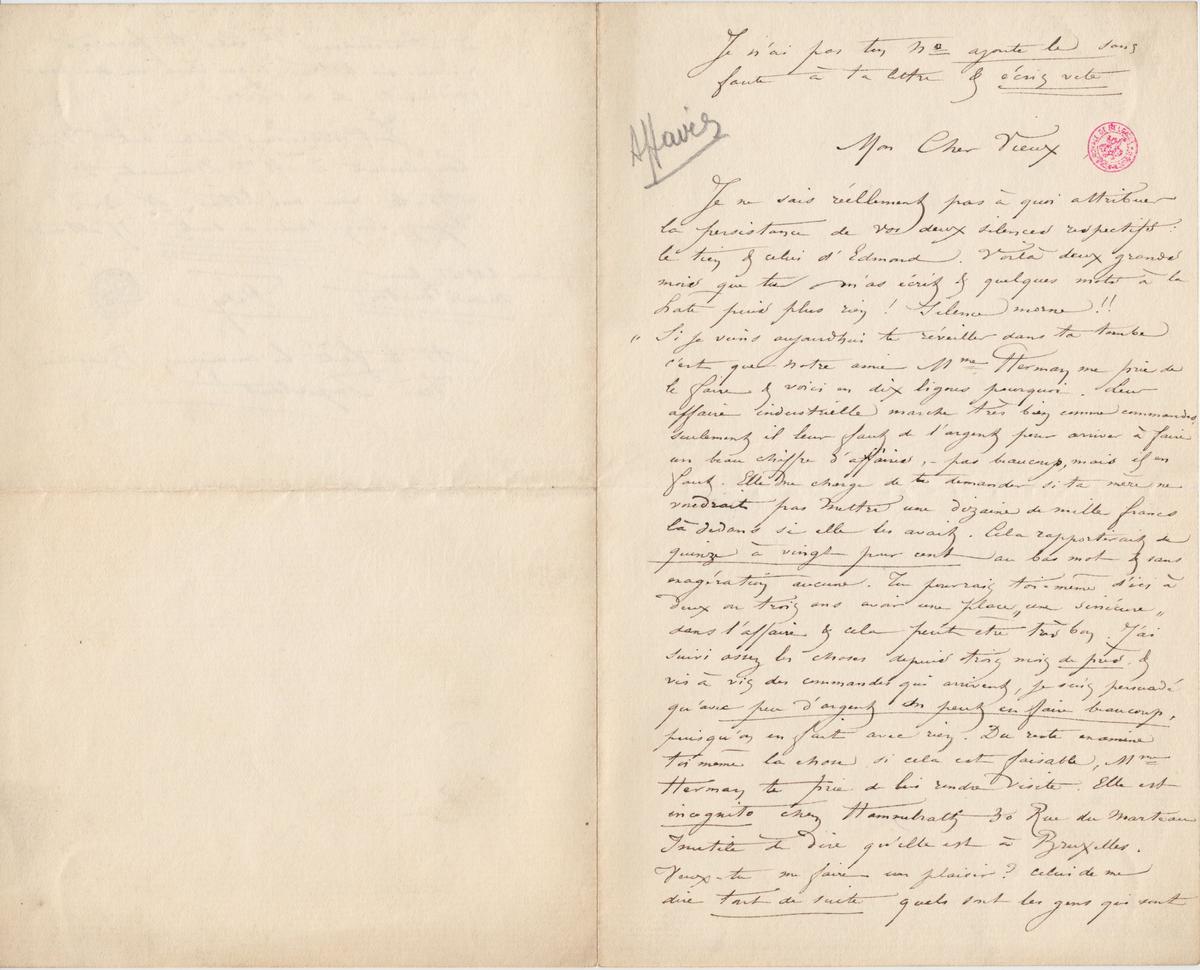 Je n'ai pas ton No ajoute le sans
faute à ta lettre & écris vite
Affaires
Mon Cher Vieux
Je ne sais réellement pas à quoi attribuer
la persistance de vos deux silences respectifs :
le tien & celui d'Edmond. Voilà deux grands
mois que tu m'as écrit & quelques mots à la
hate puis plus rien ! Silence morne !!
" Si je viens aujourdhui te réveiller dans ta tombe
c'est que notre amie Mme Herman me prie de
le faire & voici en dix lignes pourquoi. Leur
affaire industrielle marche très bien comme commandes,
seulement il leur faut de l'argent pour arriver à faire
un beau chiffre d'affaires, – pas beaucoup, mais il en
faut. Elle me charge de te demander si ta mère ne
voudrait pas mettre une dizaine de mille francs
là dedans si elle les avait. Cela rapporterait de
quinze à vingt pour cent au bas mot & sans
exagération aucune. Tu pourrais toi-même d'ici à
deux ou trois ans avoir une place „une sinécure„
dans l'affaire & cela peut etre très bon. J'ai
suivi assez les choses depuis trois mois de près &
vis à vis des commandes qui arrivent, je suis persuadé
qu'avec peu d'argent on peut en faire beaucoup,
puisqu'on en fait avec rien. Du reste examine
toi même la chose si cela est faisable, Mme
Herman te prie de lui rendre visite. Elle est
incognito chez 30 Rue du Marteau
Inutile de dire qu'elle est à Bruxelles.
Veux-tu me faire un plaisir ? celui de me
dire tout de suite quels sont les gens qui sont